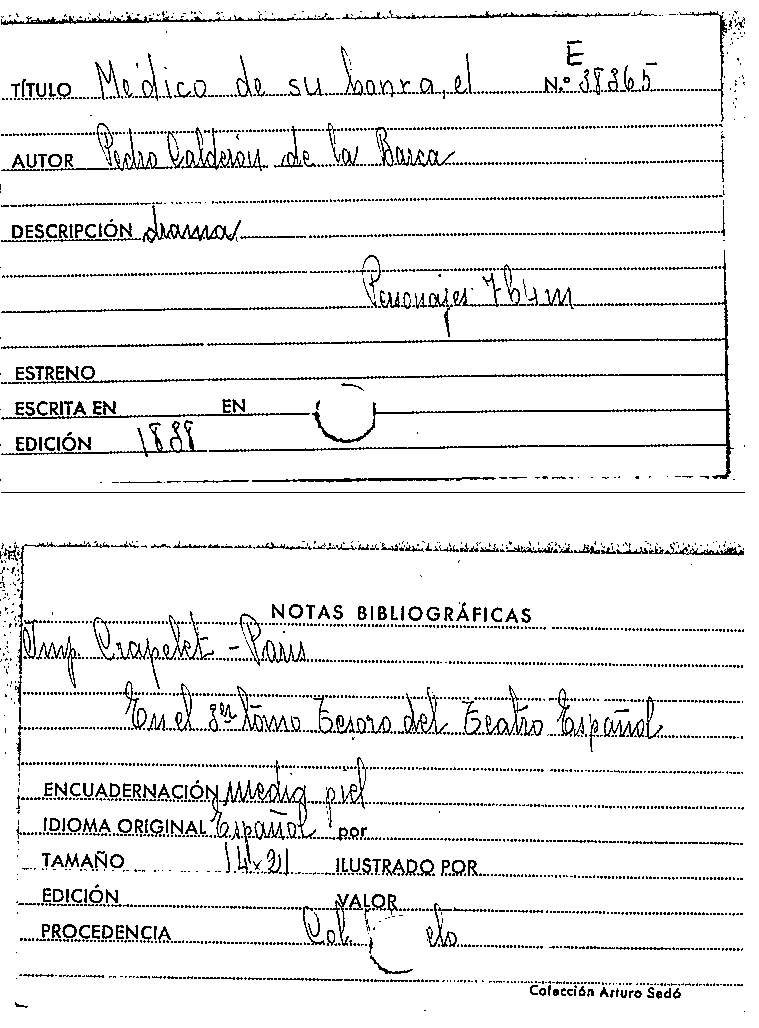 E
TÍTULO Médico de su honra, el N.º 38365
AUTOR Pedro Calderón de la Barca
DESCRIPCIÓN drama
Personajes 7h4m
ESTRENO
ESCRITA EN EN
EDICIÓN 1838
NOTAS BIBLIOGRÁFICAS
Imp. Crapelet - Paris
En el 3er tomo Tesoro del Teatro Español
ENCUADERNACIÓN media piel
IDIOMA ORIGINAL Español por
TAMAÑO 14x21 ILUSTRADO POR
EDICIÓN VALOR
PROCEDENCIA Col.
Colección Arturo Sedó